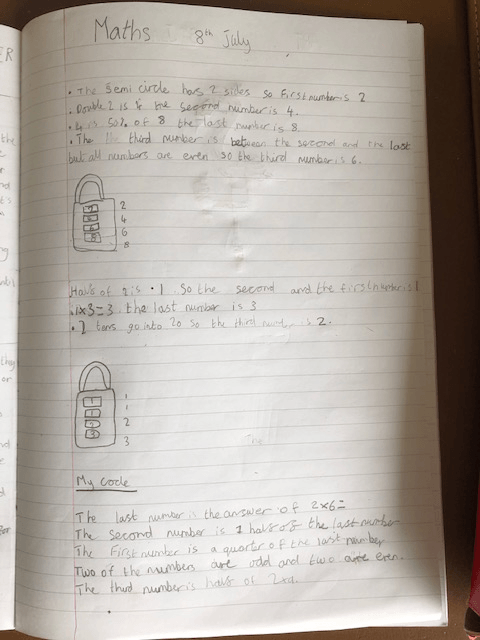 Maths 8th July
• The Semi circle has 2 sides so First number is 2
• Double 2 is 4 the second number is 4.
• 4 is 50% of 8 the last number is 8.
• The third number is between the second and the last
but all numbers are even so the third number is 6.
2
4
6
8
Half of 2 is 1 So the second and the first number is 1
• 1x3=3 the last number is 3
tens go into 20 so the third is 2.
1
1
2
3
My code
The last number is the answer of 2x6=
The second number is half of the last number
The First number is a quarter of the last number
Two of the numbers are odd and two are even.
The third number is half of